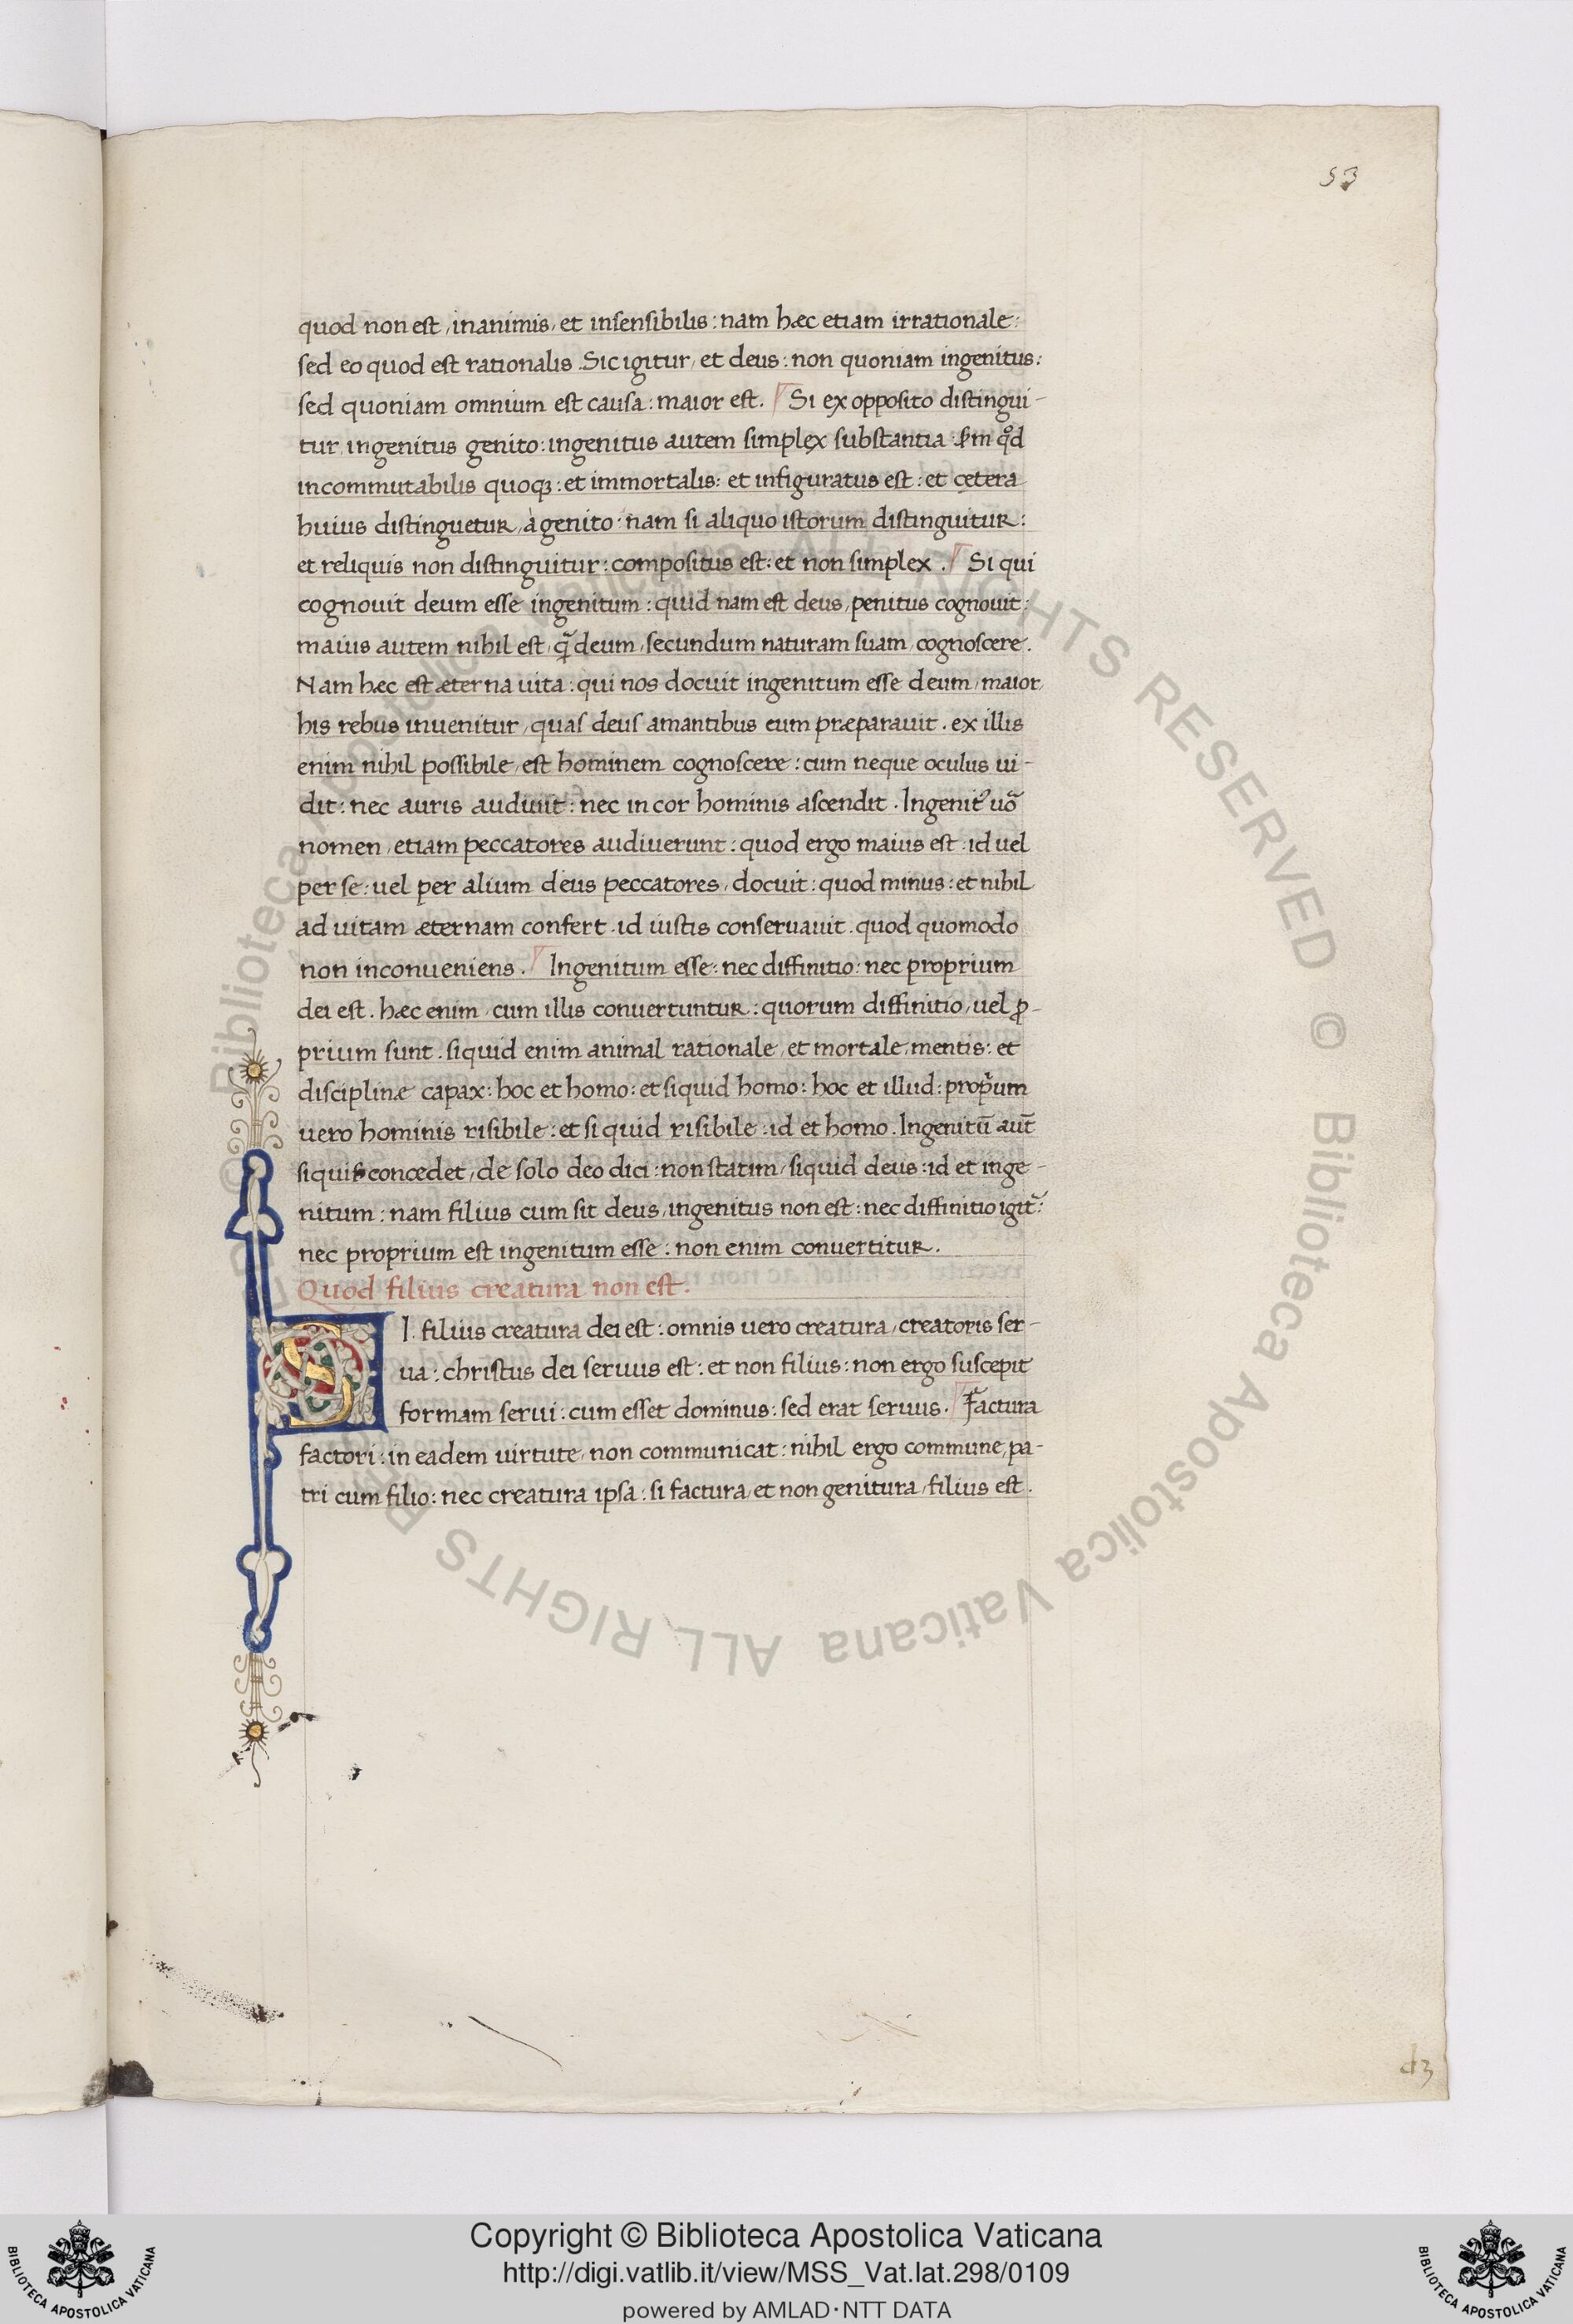 53
quod non est, inanimis, et insensibilis: nam hæc etiam irrationale:
sed eo quod est rationalis. Sic igitur, et deus: non quoniam ingenitus:
sed quoniam omnium est causa: maior est. Si ex opposito distingui-
tur, ingenitus genito: ingenitus autem simplex substantia. scđm qđ
incommutabilis quoqꝫ: et immortalis: et infiguratus est: et cętera
huius distinguetur, à genito: nam si aliquo istorum distinguitur:
et reliquis non distinguitur: compositus est: et non simplex. Si qui
cognouit deum esse ingenitum: quid nam est deus, penitus cognouit:
maius autem nihil est, q̃ deum, secundum naturam suam, cognoscere.
Nam hæc est æterna uita: qui nos docuit ingenitum esse deum, maior,
his rebus inuenitur, quas deus amantibus eum præparauit. ex illis
enim nihil possibile, est hominem cognoscere: cum neque oculus ui-
dit: nec auris audiuit: nec in cor hominis ascendit. Ingenit᾿ uō
nomen, etiam peccatores audiuerunt: quod ergo maius est: id uel
per se: uel per alium deus peccatores, docuit: quod minus: et nihil
ad uitam æternam confert. id iustis conseruauit. quod quomodo
non inconueniens. Ingenitum esse: nec diffinitio: nec proprium
dei est. hæc enim, cum illis conuertuntur: quorum diffinitio, uel ꝓ-
prium sunt. siquid enim animal rationale, et mortale, mentis: et
disciplinæ capax: hoc et homo: et siquid homo: hoc et illud: prop̃um
uero hominis risibile: et si quid risibile: id et homo. Ingenitū aut̄
siquis concedet, de solo deo dici: non statim, siquid deus: id et inge-
nitum: nam filius cum sit deus, ingenitus non est: nec diffinitio igit᷑:
nec proprium est ingenitum esse: non enim conuertitur.
Quod filius creatura non est.
SI filius creatura dei est: omnis uero creatura, creatoris ser-
ua: christus dei seruus est: et non filius: non ergo suscepit
formam serui: cum esset dominus: sed erat seruus. Factura
factori: in eadem uirtute, non communicat: nihil ergo commune, pa-
tri cum filio: nec creatura ipsa: si factura, et non genitura, filius est.
d3
© Biblioteca Apostolica Vaticana ALL RIGHTS RESERVED © Biblioteca Apostolica Vaticana ALL RIGHTS RESERVED
Copyright © Biblioteca Apostolica Vaticana
http://digi.vatlib.it/view/MSS_Vat.lat.298/0109
powered by AMLAD·NTT DATA
BIBLIOTECA APOSTOLICA VATICANA
BIBLIOTECA APOSTOLICA VATICANA